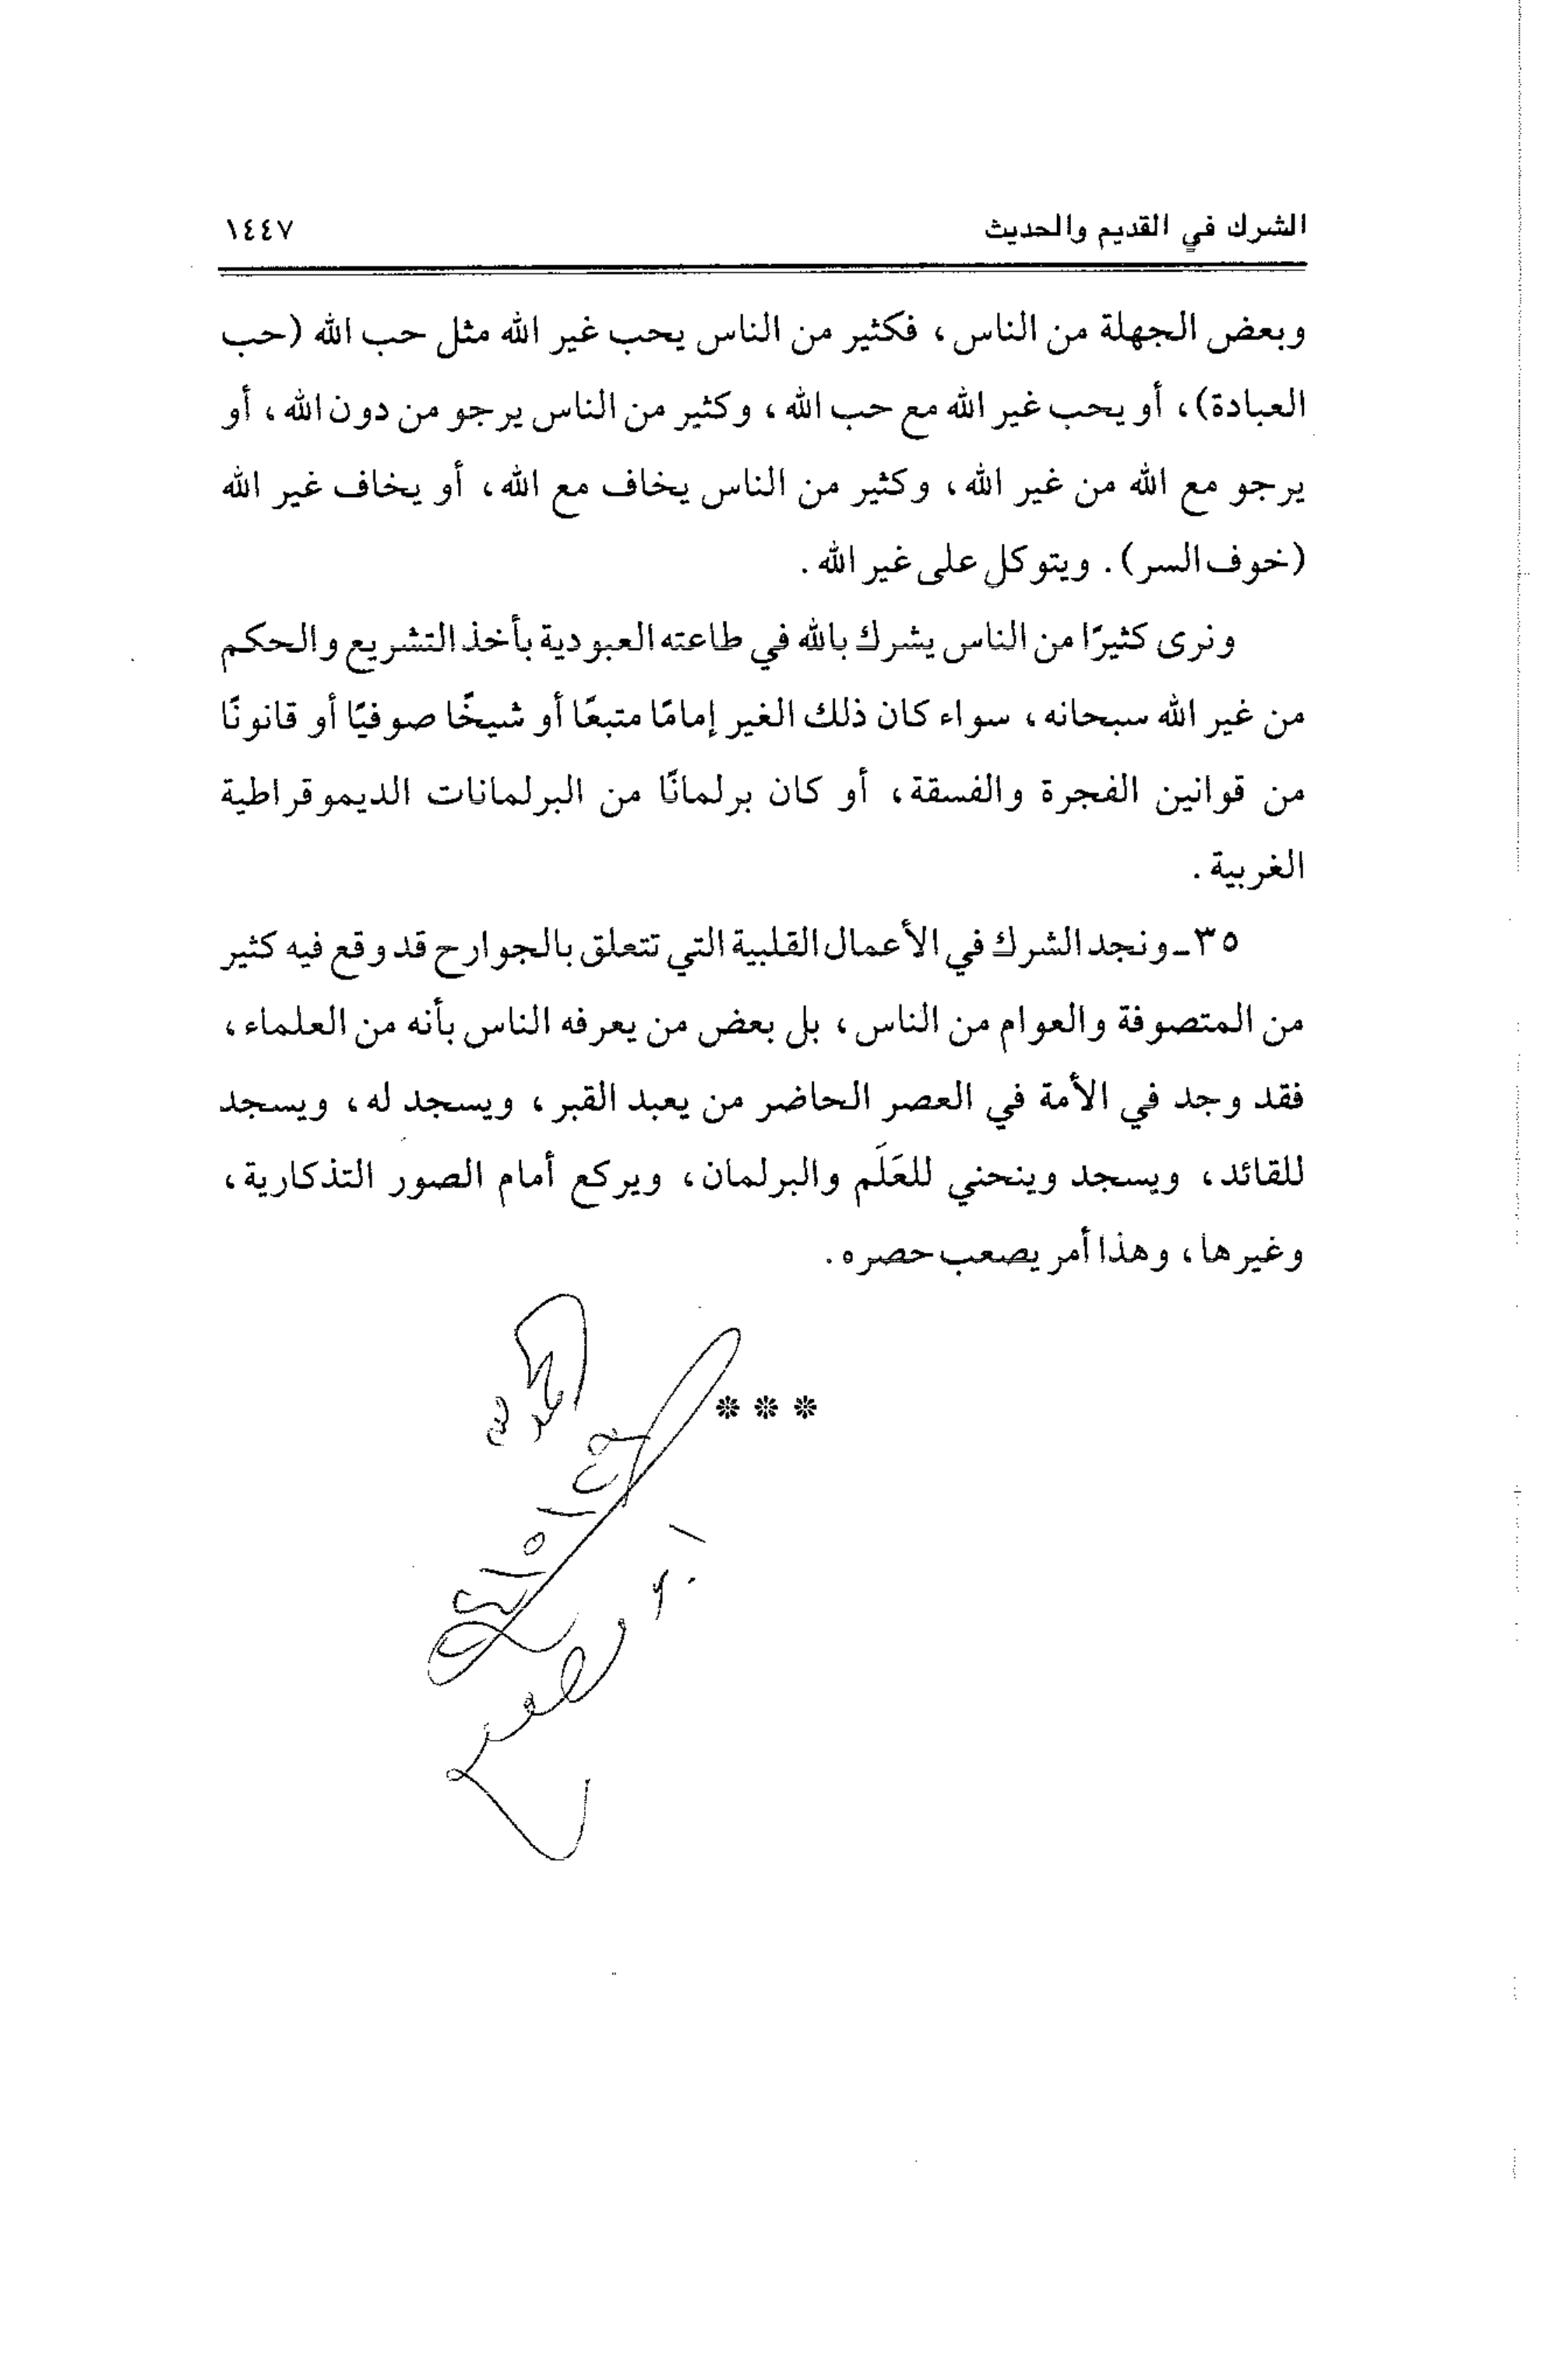 الشرك في القديم والحديث ١٤٤٧
وبعض الجهلة من الناس، فكثير من الناس يحب غير الله مثل حب الله (حب
العبادة)، أو يحب غير الله مع حب الله، وكثير من الناس يرجو من دون الله، أو
يرجو مع الله من غير الله، وكثير من الناس يخاف مع الله، أو يخاف غير الله
(خوف السر). ويتوكل على غير الله.
ونرى كثيرًا من الناس يشرك بالله في طاعته العبودية بأخذ التشريع والحكم
من غير الله سبحانه، سواء كان ذلك الغير إمامًا متبعًا أو شيخًا صوفيًا أو قانونًا
من قوانين الفجرة والفسقة، أو كان برلمانًا من البرلمانات الديموقراطية
الغربية.
٣٥ـ ونجد الشرك في الأعمال القلبية التي تتعلق بالجوارح قد وقع فيه كثير
من المتصوفة والعوام من الناس، بل بعض من يعرفه الناس بأنه من العلماء،
فقد وجد في الأمة في العصر الحاضر من يعبد القبر، ويسجد له، ويسجد
للقائد، ويسجد وينحني للعَلَم والبرلمان، ويركع أمام الصور التذكارية،
وغيرها، وهذا أمر يصعب حصره.
الحمد لله
***